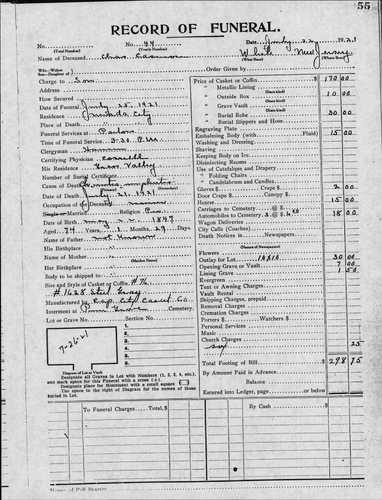 55
RECORD OF FUNERAL.
No. No. 34 Date July 22 1921
(Total Number) (Yearly Number)
Name of Deceased Chas White New Jersey
(What Race) (Where Born)
Wife-Widow
Son-Daughter of
Order Given by
Charge to Son
Address
How Secured
Date of Funeral July 25, 1921
Residence City
Place of Death
Funeral Services at Parlors
Time of Funeral Service 3-30 P.M.
Clergyman
Certifying Physician
His Residence Valley
Number of Burial Certificate
Cause of Death
Date of Death July 21, 1921
Occupation of the Deceased
Single or Married Religion
Date of Birth May 1847
Aged 74 Years 1 Months 29 Days
Name of Father not Known
His Birthplace
Name of Mother
(Maiden Name)
Her Birthplace
Body to be shipped to
Size and Style of Casket or Coffin
#1628 Steel Gray
Manufactured by Cap. City Casket Co.
Interment at Cemetery.
Lot or Grave No. Section No.
1.
2.
3.
4.
5.
6.
7-26-21
Diagram of Lot or Vault
Designate all Graves in Lot with Numbers (1, 2, 3, 4, etc.),
and mark space for this Funeral with a cross (+).
Designate place for Monument with a small square
Use this space to right of diagram for names of those
buried in Lot.
Price of Casket or Coffin $ 170 00
" Metallic Lining
(State kind)
" Outside Box 10 00
(State kind)
" Grave Vault
(State kind)
" Burial Robe 30 00
(State kind)
" Burial Slippers and Hose
Engraving Plate
Embalming Body (with Fluid) 15 00
Washing and Dressing
Shaving
Keeping Body on Ice
Disinfecting Rooms
Use of Catafalque and Drapery
" Folding Chairs
" Candelabrum and Candles
Gloves $ Crape $ 2 00
Door Crape $ Canopy $
Hearse 15 00
Carriages to Cemetery @ $
Automobiles to Cemetery 3 @ $ 6.00 18 00
Wagon Deliveries
City Calls (Coaches)
Death Notices in Newspapers
(Names of Newspapers)
Flowers
Outlay for Lot 30 00
Opening Grave or Vault 7 00
Lining Grave 1 50
Evergreen
Tent or Awning Charges
Vault Rental
Shipping Charges, prepaid
Removal Charges
Cremation Charges
Porters $ Watchers $
Personal Services
Music
Church Charges
25
Total Footing of Bill $ 298 75
By Amount Paid in Advance
Balance
Entered into Ledger, page or below
To Funeral Charges Total, $
By Cash
Names of Pall Bearers